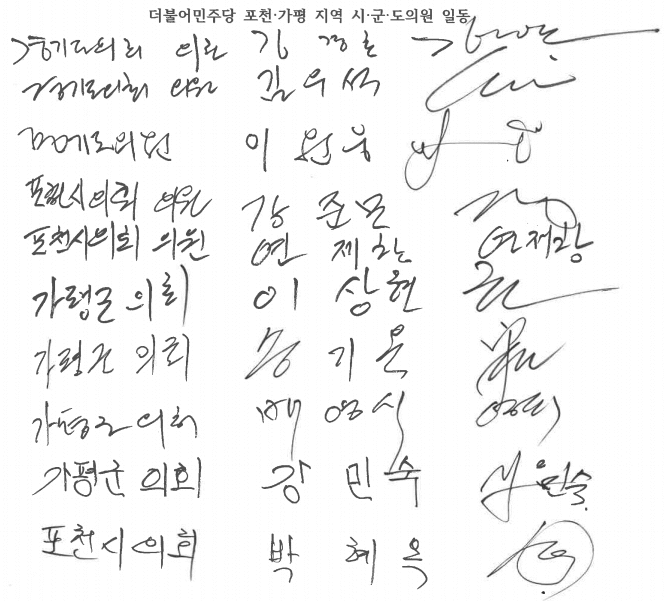 더불어민주당 포천·가평 지역 시·군·도의원 일동
경기도의회 의원 김경호
경기도의회 의원 김우석
경기도의원 이원웅
포천시의회 의원 강준모
포천시의회 의원 연제창 연제창
가평군의회 이상현
가평군의회 송기욱
가평군의회 배영식
가평군의회 강민숙 강민숙
포천시의회 박혜옥